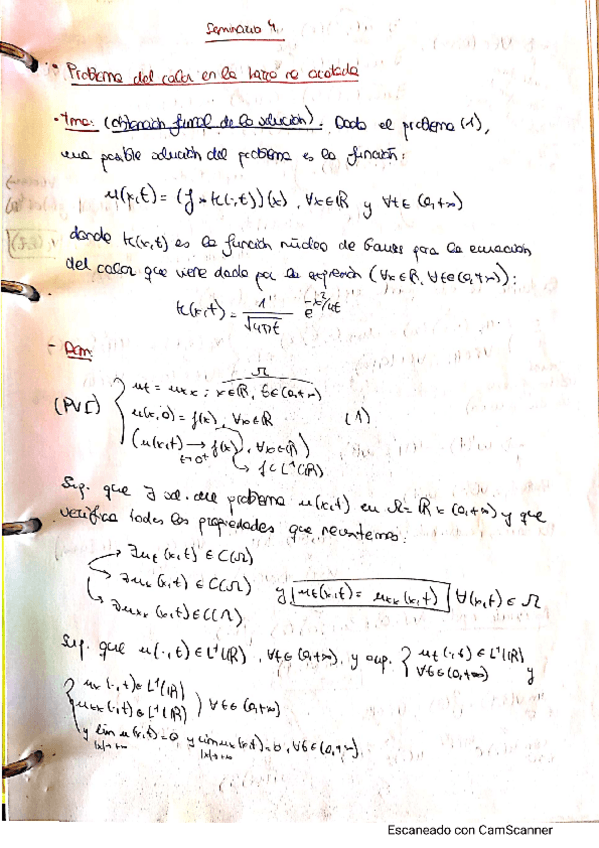 Seminario 4.
• Problema del calor en la barra no acotada
• Tma: (obtención formal de la solución). Dado el problema (1),
una posible solución del problema es la función:
u(x,t) = (f * K(·,t))(x), ∀x∈ℝ y ∀t∈(0,+∞)
donde K(x,t) es la función núcleo de Gauss para la ecuación
del calor que viene dado por la expresión (∀x∈ℝ, ∀t∈(0,+∞)):
K(x,t) = 1/√4πt e^{-x²/4t}
- Dem:
Ω
(PVI) { ut = uxx ; x∈ℝ, t∈(0,+∞)
u(x,0) = f(x), ∀x∈ℝ (1)
(u(x,t) → f(x), ∀x∈ℝ)
t→0⁺ ↳ f∈L¹(ℝ)
Sup. que ∃ sol. del problema u(x,t) en Ω = ℝ×(0,+∞) y que
verifica todas las propiedades que necesitemos:
∃ut(x,t) ∈ C(Ω)
∃ux(x,t) ∈ C(Ω) y ut(x,t) = uxx(x,t) ∀(x,t) ∈ Ω
∃uxx(x,t) ∈ C(Ω)
Sup. que u(·,t) ∈ L¹(ℝ), ∀t∈(0,+∞), y sup. { ut(·,t) ∈ L¹(ℝ)
∀t∈(0,+∞) y
{ ux(·,t) ∈ L¹(ℝ)
uxx(·,t) ∈ L¹(ℝ) } ∀t∈(0,+∞)
y lim u(x,t)=0 y lim ux(x,t)=0, ∀t∈(0,+∞).
|x|→+∞ |x|→+∞
Escaneado con CamScanner